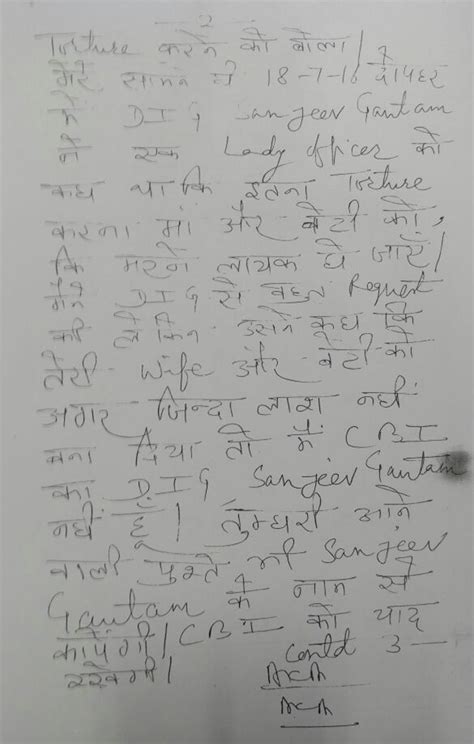 2
Torture करने को बोला।
मेरे सामने ही 18-7-16 दोपहर
में DIG Sanjeev Gautam
ने एक Lady officer को
कहा था कि इतना Torture
करना मां और बेटी को,
कि मरने लायक हो जाऐं।
मैंने DIG से बहुत Request
की लेकिन उसने कहा कि
तेरी Wife और बेटी को
अगर जिन्दा लाश नहीं
बना दिया तो मैं CBI
का D.I.G Sanjeev Gautam
नहीं हूँ। तुम्हारी आने
वाली पुश्ते भी Sanjeev
Gautam के नाम से
कांपेगी। CBI को याद
रखेगी।
Contd 3—